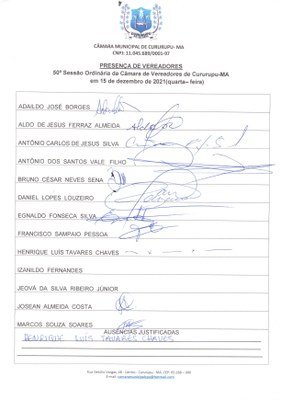 CÂMARA MUNICIPAL DE CURURUPU- MA
CNPJ: 11.045.588/0001-07
PRESENÇA DE VEREADORES
50ª Sessão Ordinária da Câmara de Vereadores de Cururupu-MA
em 15 de dezembro de 2021(quarta– feira)
ADAILDO JOSÉ BORGES
ALDO DE JESUS FERRAZ ALMEIDA
ANTÔNIO CARLOS DE JESUS SILVA
ANTÔNIO DOS SANTOS VALE FILHO
BRUNO CÉSAR NEVES SENA
DANIEL LOPES LOUZEIRO
EGNALDO FONSECA SILVA
FRANCISCO SAMPAIO PESSOA
HENRIQUE LUÍS TAVARES CHAVES
IZANILDO FERNANDES
JEOVÁ DA SILVA RIBEIRO JÚNIOR
JOSEAN ALMEIDA COSTA
MARCOS SOUZA SOARES
AUSÊNCIAS JUSTIFICADAS
HENRIQUE LUIS TAVARES CHAVES